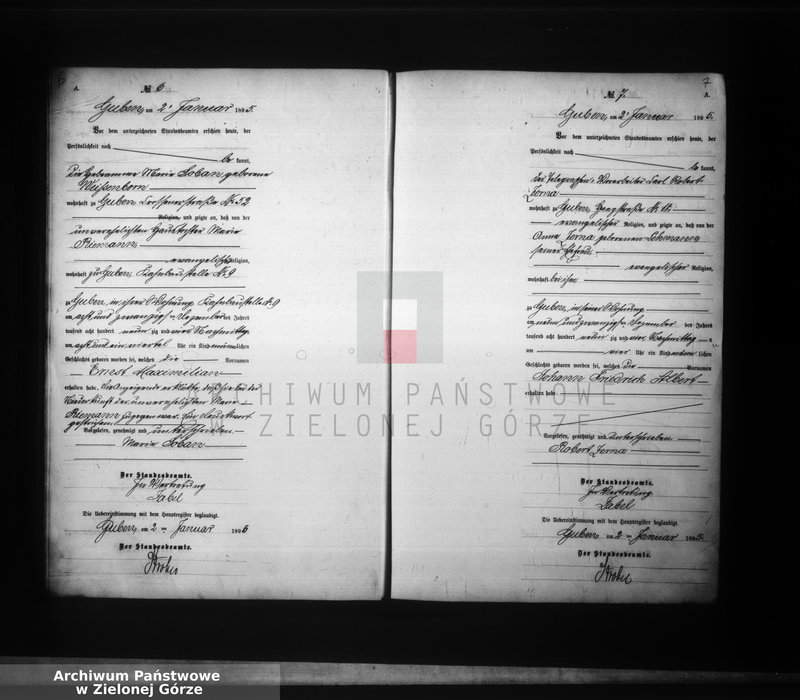 8
A.
№ 6
Guben, am 2ᵗ Januar 1895.
Vor dem unterzeichneten Standesbeamten erschien heute, der
Persönlichkeit nach
be kannt,
die Hebeamme Marie Loban geborene
Weissenborn
wohnhaft zu Guben Crossenerstraße No 32
Religion, und zeigte an, daß von der
unverehelichten Haustochter Marie
Riemann
evangelischer Religion,
wohnhaft zu Guben, Kastaniestelle No 9
zu Guben in ihrer Wohnung
am acht und zwanzigsten Dezember des Jahres
tausend acht hundert neun zig und vier Nachmittag
um acht und ein viertel Uhr ein Kind männlichen
Geschlechts geboren worden sei, welches die Vornamen
Ernst Maximilian
erhalten habe. Die Anzeigende erklärte, daß sie bei der
Niederkunft der unverehelichten Marie
Riemann zugegen war.
Vorgelesen, genehmigt und unterschrieben
Marie Loban
Der Standesbeamte.
In Vertretung
Zabel
Die Uebereinstimmung mit dem Hauptregister beglaubigt.
Guben, am 2 ten Januar 1895
Der Standesbeamte.
7
A.
№ 7.
Guben, am 2ᵗ Januar 1895.
Vor dem unterzeichneten Standesbeamten erschien heute, der
Persönlichkeit nach
be kannt,
der Telegraphen-Vorarbeiter Carl Robert
Zerna
wohnhaft zu Guben, Haagstraße No 15.
evangelischer Religion, und zeigte an, daß von der
Anna Zerna geborenen Lehmann
seiner Ehefrau
evangelischer Religion,
wohnhaft bei ihm
zu Guben, in seiner Wohnung
am neun und zwanzigsten Dezember des Jahres
tausend acht hundert neun zig und vier Nachmittag
um vier Uhr ein Kind männlichen
Geschlechts geboren worden sei, welches die Vornamen
Johann Friedrich Albert
erhalten habe
Vorgelesen, genehmigt und unterschrieben
Robert Zerna
Der Standesbeamte.
In Vertretung
Zabel
Die Uebereinstimmung mit dem Hauptregister beglaubigt.
Guben, am 2 ten Januar 1895
Der Standesbeamte.
ARCHIWUM PAŃSTWOWE
W ZIELONEJ GÓRZE
Archiwum Państwowe
w Zielonej Górze